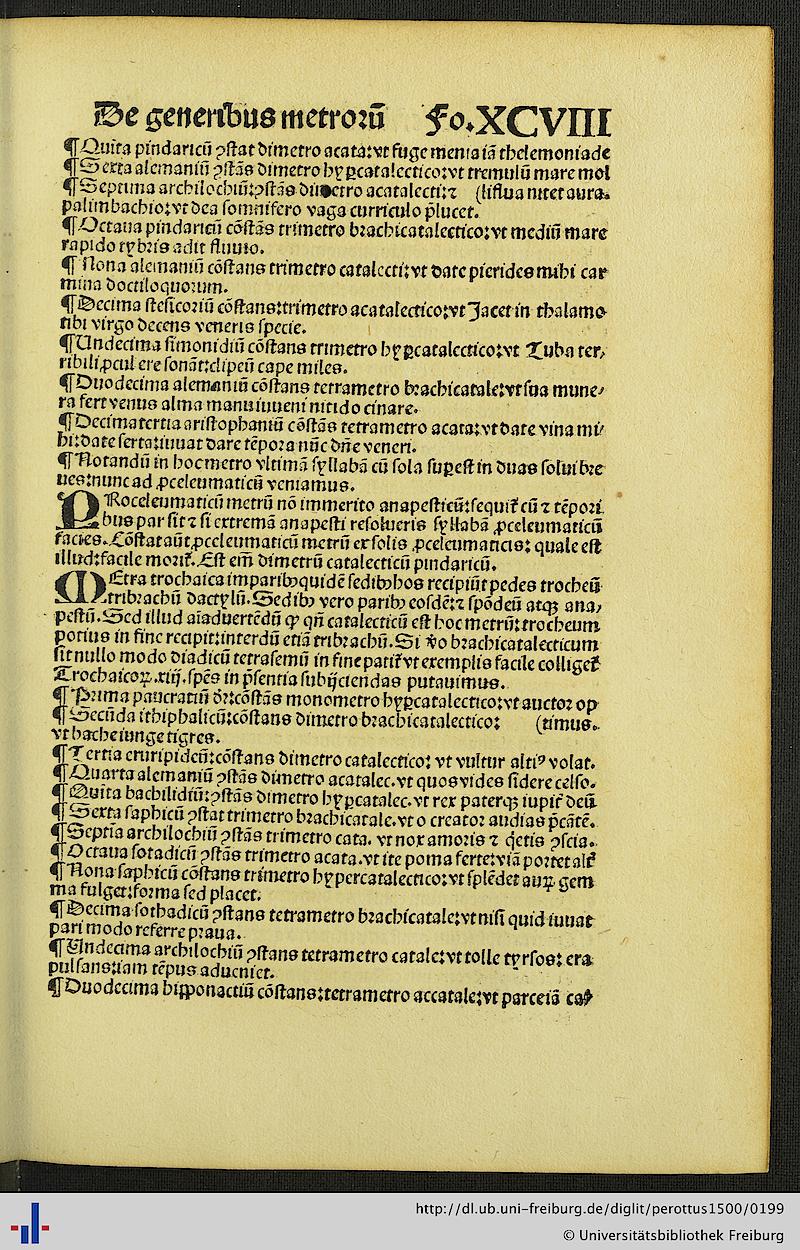 De generibus metrorū Fo.XCVIII
¶Quīta pindaricū ꝯstat dimetro acata:vt fuge menia iā thelemoniade
¶Sexta alemaniū ꝯstās dimetro hyꝑcatalectico:vt tremulū mare mol
¶Septima archilochiū:ꝯstās dimetro acatalecti:⁊ (liflua nitet aura.
palimbachio:vt dea somnifero vaga curriculo p̄lucet.
¶Octaua pindaricū cōstās trimetro brachicatalectico:vt mediū mare
rapido tybris adit fluuio.
¶Nona alemaniū cōstans trimetro catalecti:vt date pierides mihi car
mina doctiloquorum.
¶Decima stesicoriū cōstans:trimetro acatalectico:vt Jacet in thalamo
tibi virgo decens veneris specie.
¶Undecima simonidiū cōstans trimetro hyꝑcatalectico:vt Tuba ter/
ribili ꝓcul ere sonāt:clipeū cape miles.
¶Duodecima alemaniū cōstans tetrametro brachicatale:vt sua mune/
ra fert venus alma manu iuueni nitido cinare.
¶Decimatertia aristophaniū cōstās tetrametro acata:vt date vina mi/
hi:date serta:iuuat dare tēpora nūc dn̄e veneri.
¶Notandū in hoc metro vltimā syllabā cū sola suꝑest in duas solui bre
ues:nunc ad ꝓceleumaticū veniamus.
PRoceleumaticū metrū nō immerito anapesticū:sequit᷑ cū ⁊ tēpori
bus par sit ⁊ si extremā anapesti resolueris syllabā ꝓceleumaticū
facies. Cōstat aūt ꝓceleumaticū metrū ex solis ꝓceleumaticis: quale est
illud:facile morit᷑. Est em̄ dimetrū catalecticū pindaricū.
MEtra trochaica imparibꝫ quidē sedibꝫ hos recipiūt pedes trocheū
tribrachū dactylū. Sedibꝫ vero paribꝫ eosdē:⁊ spōdeū atqꝫ ana/
pestū. Sed illud aīaduertēdū ꝙ qn̄ catalecticū est hoc metrū: trocheum
potius in fine recipit:interdū etiā tribrachū. Si v̄o brachicatalecticum
sit nullo modo diadicū tetrasemū in fine patit᷑ vt exemplis facile colliget᷑
Trochaicoꝝ.xiij.spēs in p̄sentia subijciendas putauimus.
¶Prima pancratiū dr̄:cōstās monometro hyꝑcatalectico:vt auctor op
¶Secūda ithiphalicū:cōstans dimetro brachicatalectico: (timus.
vt bache iunge tigres.
¶Tertia eruripideū:cōstans dimetro catalectico: vt vultur altiꝰ volat.
¶Quarta alemaniū ꝯstās dimetro acatalec.vt quos vides sidere celso.
¶Quīta bachilidiū:ꝯstās dimetro hyꝑcatalec.vt rex paterqꝫ iupit᷑ deū
¶Sexta saphicū ꝯstat trimetro brachicatale.vt o creator audias p̄cātē.
¶Septīa archilochiū ꝯstās trimetro cata. vt nox amoris ⁊ q̄etis ꝯscia.
¶Octaua sotadicū ꝯstās trimetro acata.vt ite poma ferte:viā portet alt᷑
¶Nona saphicū cōstans trimetro hypercatalectico:vt splēdet auꝝ gem
ma fulget:forma sed placet.
¶Decima sothadicū ꝯstans tetrametro brachicatale:vt nisi quid iuuat
pari modo referre praua.
¶Undecima archilochiū ꝯstans tetrametro catale:vt tolle tyrsos: era
pulsans:iam tēpus adueniet.
¶Duodecima hipponactiū cōstans:tetrametro accatale:vt parce iā
http://dl.ub.uni-freiburg.de/diglit/perottus1500/0199
© Universitätsbibliothek Freiburg